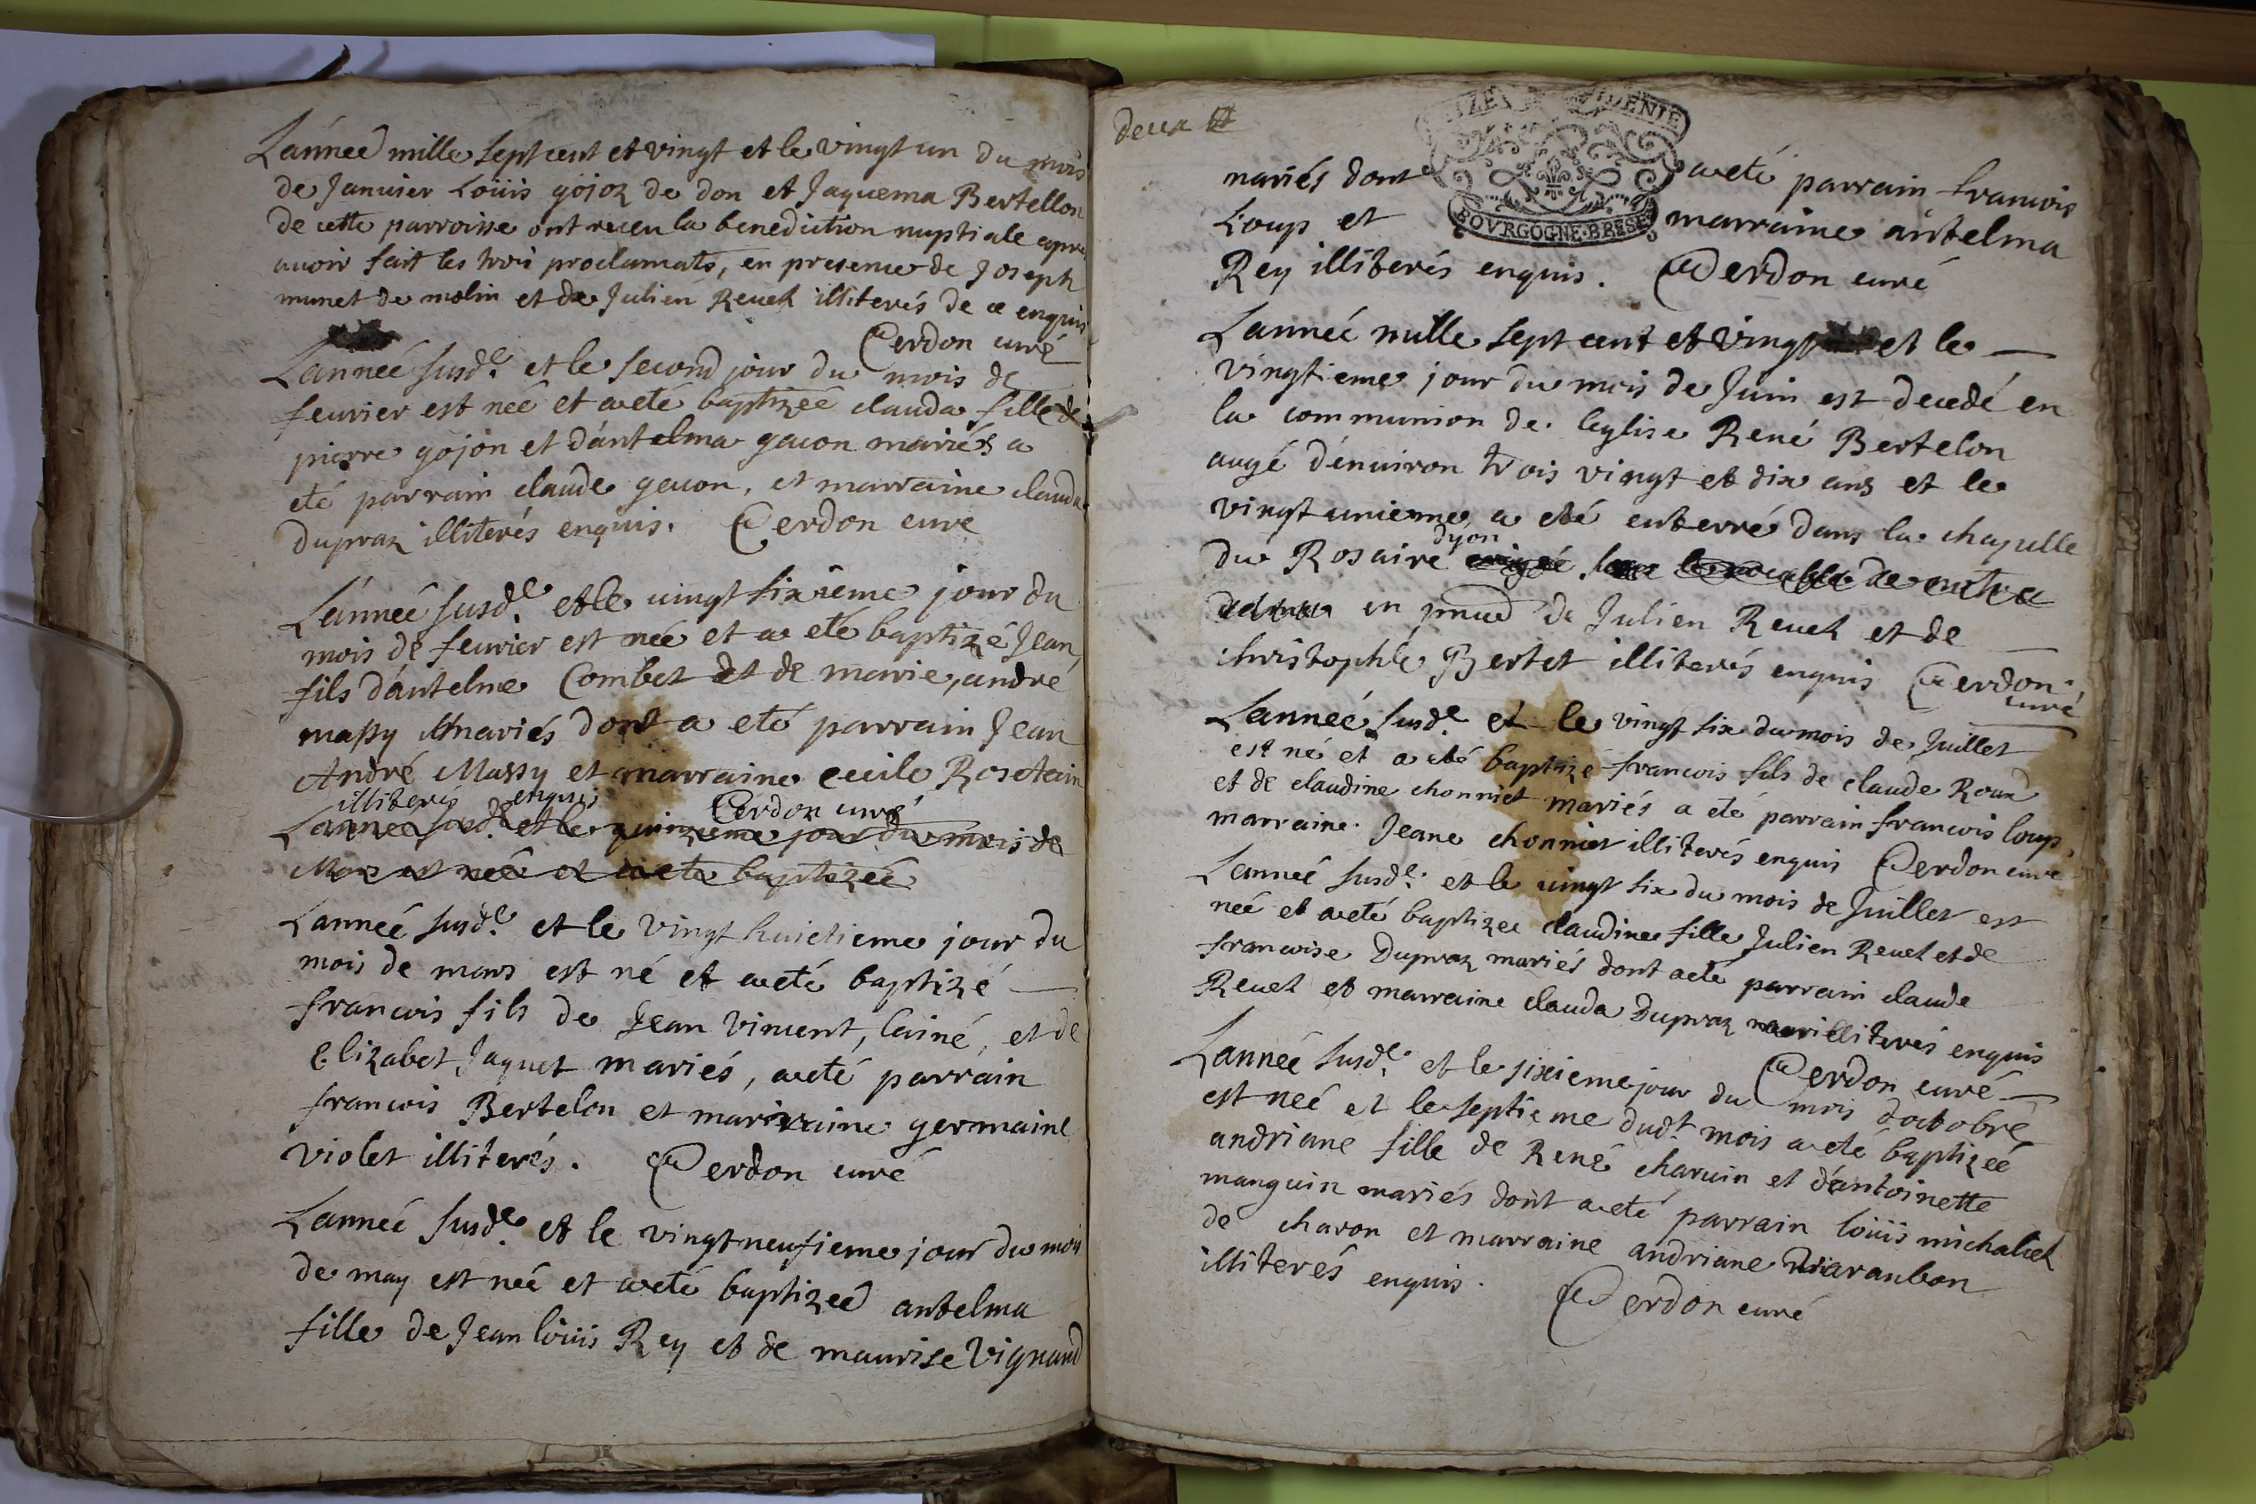 Lánneé mille sept cent et vingt et le vingt un du mois
de Januier Loüis gojoz de don et Jaquema Bertellon
de cette parroisse ont receu la benediction nuptiale apre
auoir fait les trois proclamats, en presence de Joseph
munet de molin et de Julien Reuel illiterés de ce enquis
Cerdon curé
L'anneé susd.e et le second jour du mois de
feurier est neé et a eté baptizeé clauda fille de
pierre gojon et dántelma gauon mariés a
eté parrain claude geuon, et marraine clauda
Dupraz illiterés enquis. Cerdon cure
L'ánneé susd.e et le uingt sixieme jour du
mois de feurier est neé et a eté baptizé Jean,
fils dántelme Combet et de marie, andre
massy mariés dont a eté parrain Jean
André Massy et marraine cecile Rosetain
illiterés enquis Cerdon curé
L'annee susd.e et le quinzieme jour du mois de
Mars est neé et a ete baptizeé
Lanneé susd.e et le vingt huictieme jour du
mois de mars est né et a eté baptizé
francois fils de Jean Vincent, lainé, et de
Elizabet Jaquet mariés, a eté parrain
francois Bertelon et marraine germaine
violet illiterés. Cerdon curé
Lanneé susd.e et le vingt neufieme jour du moi
de may est neé et a eté baptizeé antelma
fille de Jean loüis Rey et de maurise Vignand
deux
BOVRGOGNE·BRESSE
mariés dont a eté parrain francois
Loup et marraine ántelma
Rey illiterés enquis. Cerdon curé
Lanneé mille sept cent et vingt et le
vingtieme jour du mois de Juin est decedé en
la communion de leglise René Bertelon
augé dénuiron trois vingt et dix ans et le
vingt unieme, a eté enterré dans la chapelle
dyon
du Rosaire de
en de Julien Reuel et de
christophle Bertet illiterés enquis Cerdon
curé
Lanneé susd.e et le vingt six du mois de Juillet
est né et a eté baptizé francois fils de claude Roux
et de claudine chonniet mariés a eté parrain francois loup,
marraine Jeane chonniet illiterés enquis Cerdon cure
Lanneé susd.e et le uingt six du mois de Juillet est
neé et a eté baptizee claudine fille Julien Reuel et de
francoise Dupraz mariés dont a eté parrain claude
Reuel et marraine clauda Dupraz illiterés enquis
Cerdon curé
Lanneé susd.e et le sixieme jour du mois doctobre
est neé et le septieme dud.t mois a eté baptizeé
andriane fille de René charuin et dántoinette
manguin mariés dont a eté parrain loüis michaliet
de charon et marraine andriane Maraubon
illiterés enquis. Cerdon curé